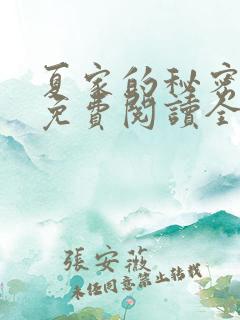 夏家的秘密
免費閱讀全
張安薇
未经同意禁止转载